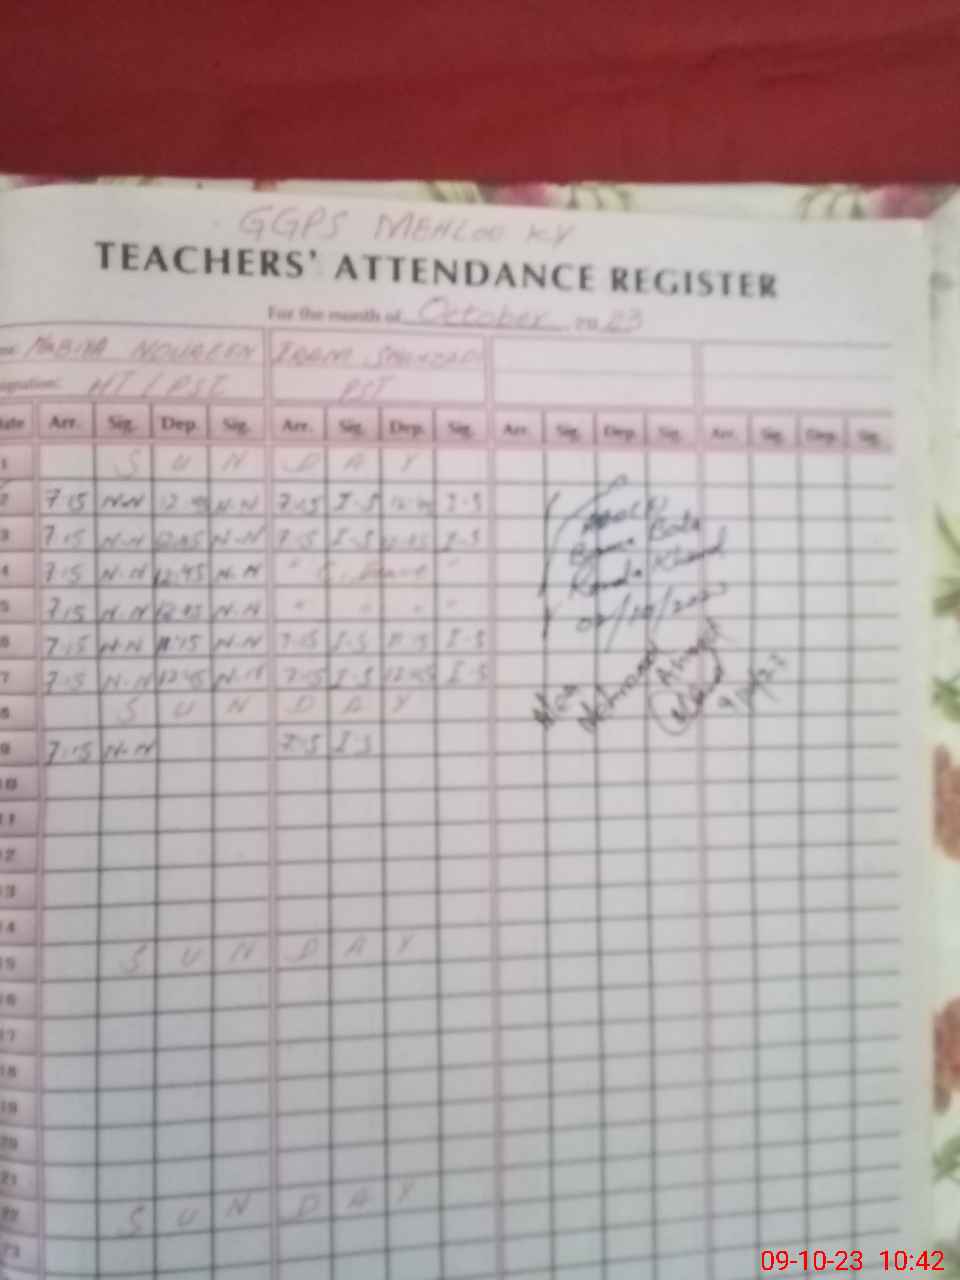 GGPS MEHLOO KY
TEACHERS' ATTENDANCE REGISTER
For the month of October 2023
NABIYA NOUREEN IRAM SHAHZADI
HT / PST PST
Date Arr. Sig. Dep. Sig. Arr. Sig. Dep. Sig. Arr. Sig. Dep. Sig. Arr. Sig. Dep. Sig.
1 S U N D A Y
2 7:15 N-N 12:45 N-N 7:15 I-S 12:45 I-S
3 7:15 N-N 12:45 N-N 7:15 I-S 12:45 I-S
4 7:15 N-N 12:45 N-N " "
5 7:15 N-N 12:45 N-N " " " "
6 7:15 N-N 11:15 N-N 7:15 I-S 11:15 I-S
7 7:15 N-N 12:45 N-N 7:15 I-S 12:45 I-S
8 S U N D A Y
9 7:15 N-N 7:15 I-S
10
11
12
13
14
15 S U N D A Y
16
17
18
19
20
21
22 S U N D A Y
23
02/10/2023
09-10-23 10:42